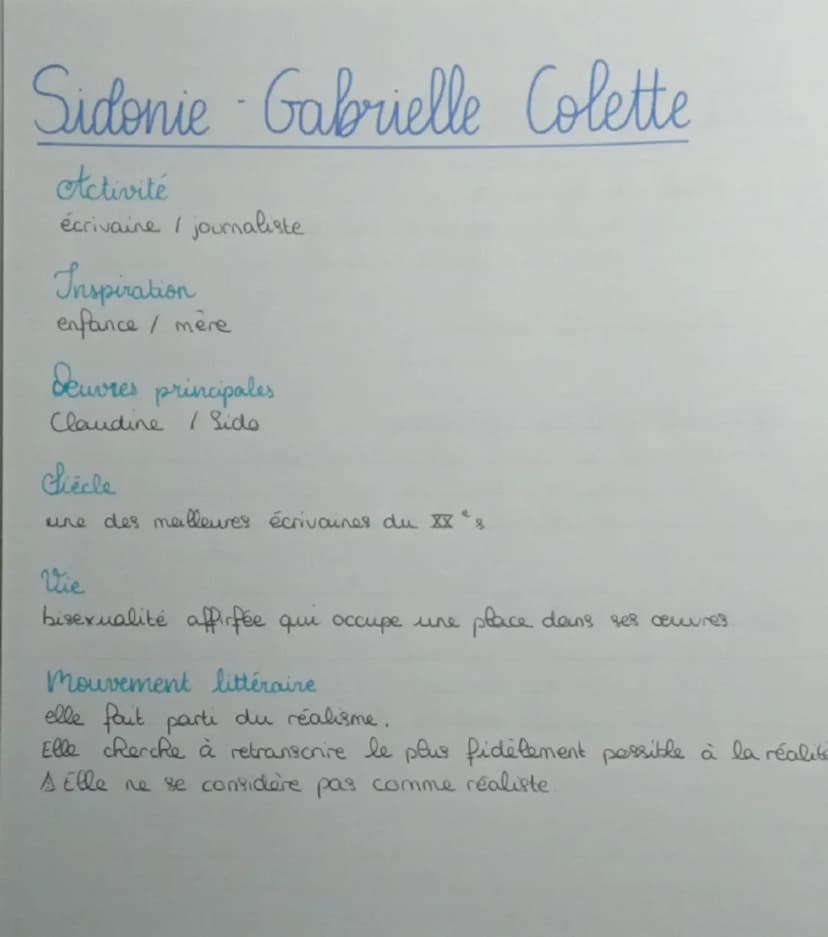 Sidonie - Gabrielle Colette
Activité
écrivaine / journaliste
Inspiration
enfance / mère
Oeuvres principales
Claudine / Sido
Siècle
une des meilleures écrivaines du XXe s
Vie
bisexualité affirfée qui occupe une place dans ses œuvres
Mouvement littéraire
elle fait parti du réalisme.
Elle cherche à retranscrire le plus fidèlement possible à la réalité
⚠ Elle ne se considère pas comme réaliste.